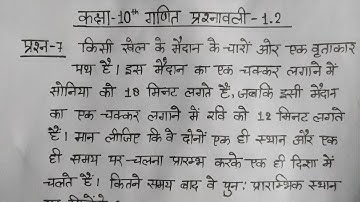 कक्षा-10th गणित प्रश्नावली-1.2
प्रश्न-7 किसी खेल के मैदान के चारों ओर एक वृत्ताकार
पथ है। इस मैदान का एक चक्कर लगाने में
सोनिया को 18 मिनट लगते हैं, जबकि इसी मैदान
का एक चक्कर लगाने में रवि को 12 मिनट लगते
हैं। मान लीजिए कि वे दोनों एक ही स्थान और एक
ही समय पर चलना प्रारम्भ करके एक ही दिशा में
चलते हैं। कितने समय बाद वे पुनः प्रारम्भिक स्थान